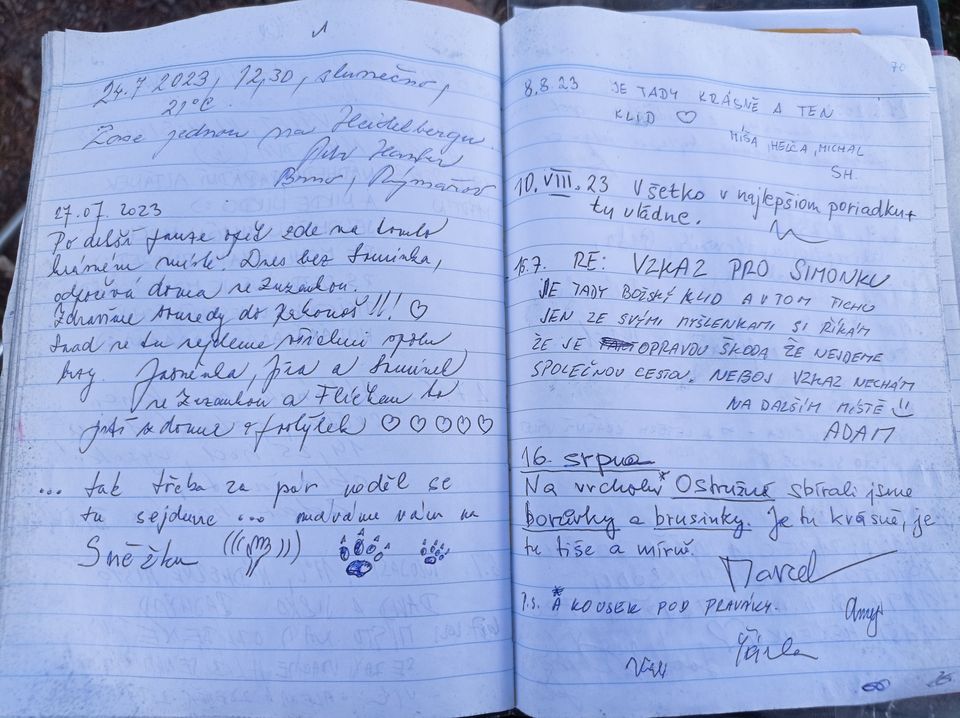 24.7 2023, 12,30, slunečno,
21°C.
Zase jednou na Heidelbergu.
Petr
Brno, Rýmařov
27.07. 2023
Po delší pauze opět zde na tomto
krásném místě. Dnes bez
odpočívá doma se Zuzankou.
Zdravíme sousedy do !!! ♡
Snad se tu sejdeme všichni spolu
Jasněnka, Jíťa a
se Zuzankou a Flíčkem
ještě doma ♡♡♡♡♡
... tak třeba za pár neděl se
tu sejdeme ... máváme vám na
Sněžku
70
8.8 23 JE TADY KRÁSNĚ A TEN
KLID ♡
MÍŠA, HELČA, MICHAL
SH.
10. VIII. 23 Všetko v najlepšiom poriadku
tu vládne.
15.7. RE: VZKAZ PRO SIMONKU
JE TADY BOŽSKÝ KLID A V TOM TICHU
JEN ZE SVÝMI MYŠLENKAMI SI ŘÍKÁM
ŽE JE OPRAVDU ŠKODA ŽE NEJDEME
SPOLEČNOU CESTOU. NEBOJ VZKAZ NECHÁM
NA DALŠÍM MÍSTĚ
ADAM
16. srpna
Na vrcholu* Ostružné sbírali jsme
borůvky a brusinky. Je tu krásně, je
tu tiše a mírně.
Marcel
P.S. *A KOUSEK POD
Amy
Šárka